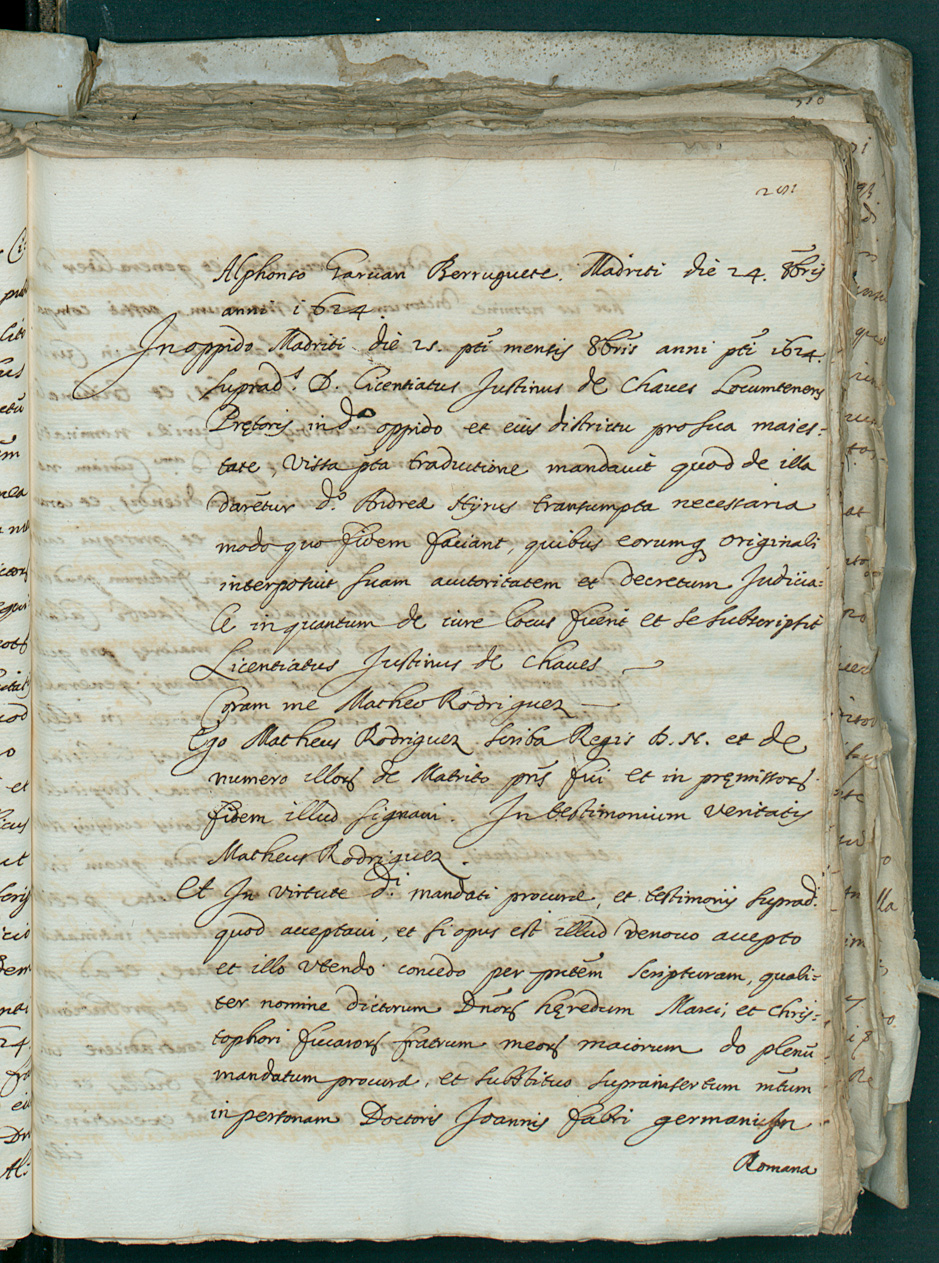 281
Alphonso Garuan Berruguete. Madriti die 24. 8bris
anni 1624.
In oppido Madriti die 25. pti mensis 8bris anni pti 1624.
suprads. D. Licentiatus Justinus de Chaues Locumtenens
Prętoris in do. oppido et eius districtu pro sua maies:
tate, vissa pta traductione mandauit quod de illa
darētur do. Andreæ Hyrus transumpta necessaria
modo quo fidem faciant, quibus eorumq originali
interposuit suam auctoritatem et decretum Judicia:
le in quantum de iure locus fuerit et se subscripsit
Licentiatus Justinus de Chaues
Coram me Matheo Rodriguez
Ego Matheus Rodriguez scriba Regis D. N. et de
numero illors de Matrito pr̄s fui et in pręmissors
fidem illud signaui. In testimonium veritatis
Matheus Rodriguez.
Et In virtute di. mandati procuræ, et testimonij suprad.
quod acceptaui, et si opus est illud denouo accepto
et illo vtendo concedo per pn̄tem scripturam, quali-
ter nomine dictorum Dnors hęredum Marci, et Chris:
tophori fuccarors fratrum meors maiorum do plenū
mandatum procuræ, et substituo suprainsertum mtum
in personam Doctoris Joannis fabri germani In
Romana